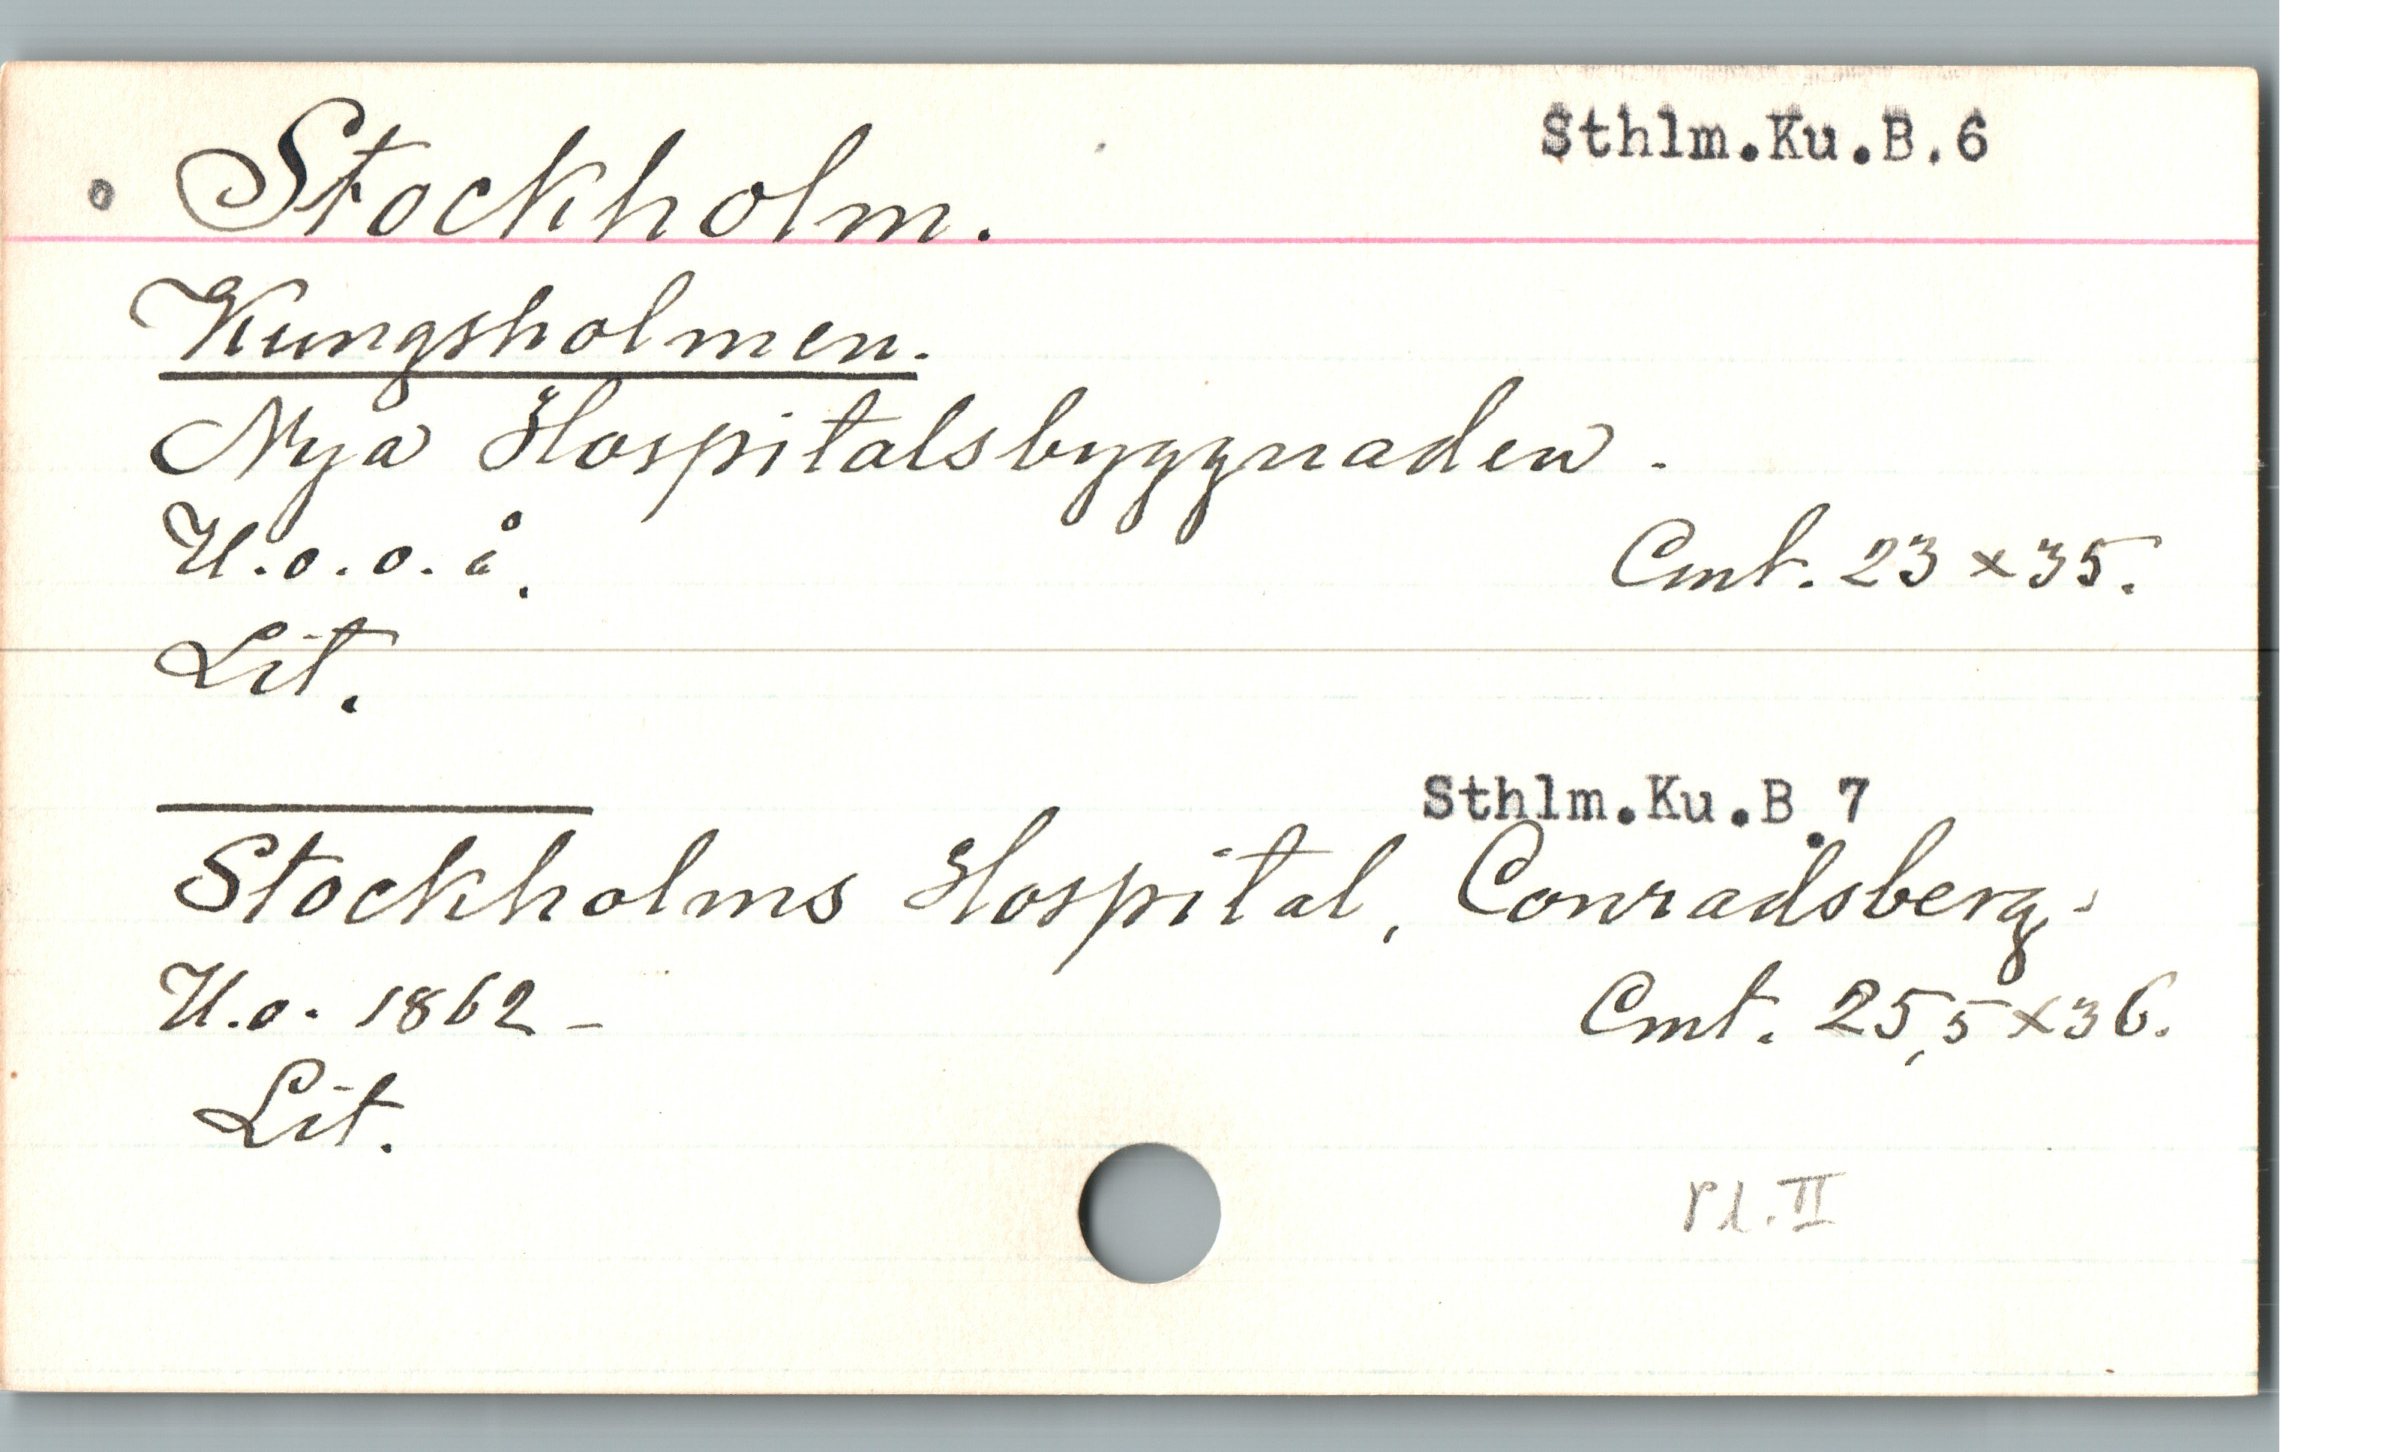 Sthlm.Ku.B.6
Stockholm.
Kungsholmen.
Nya Hospitalsbyggnaden.
U.o.o.å. Cmt. 23 x 35.
Lit.
Sthlm.Ku.B.7
Stockholms Hospital, Conradsberg.
U.o. 1862 – Cmt. 25,5 x 36.
Lit.